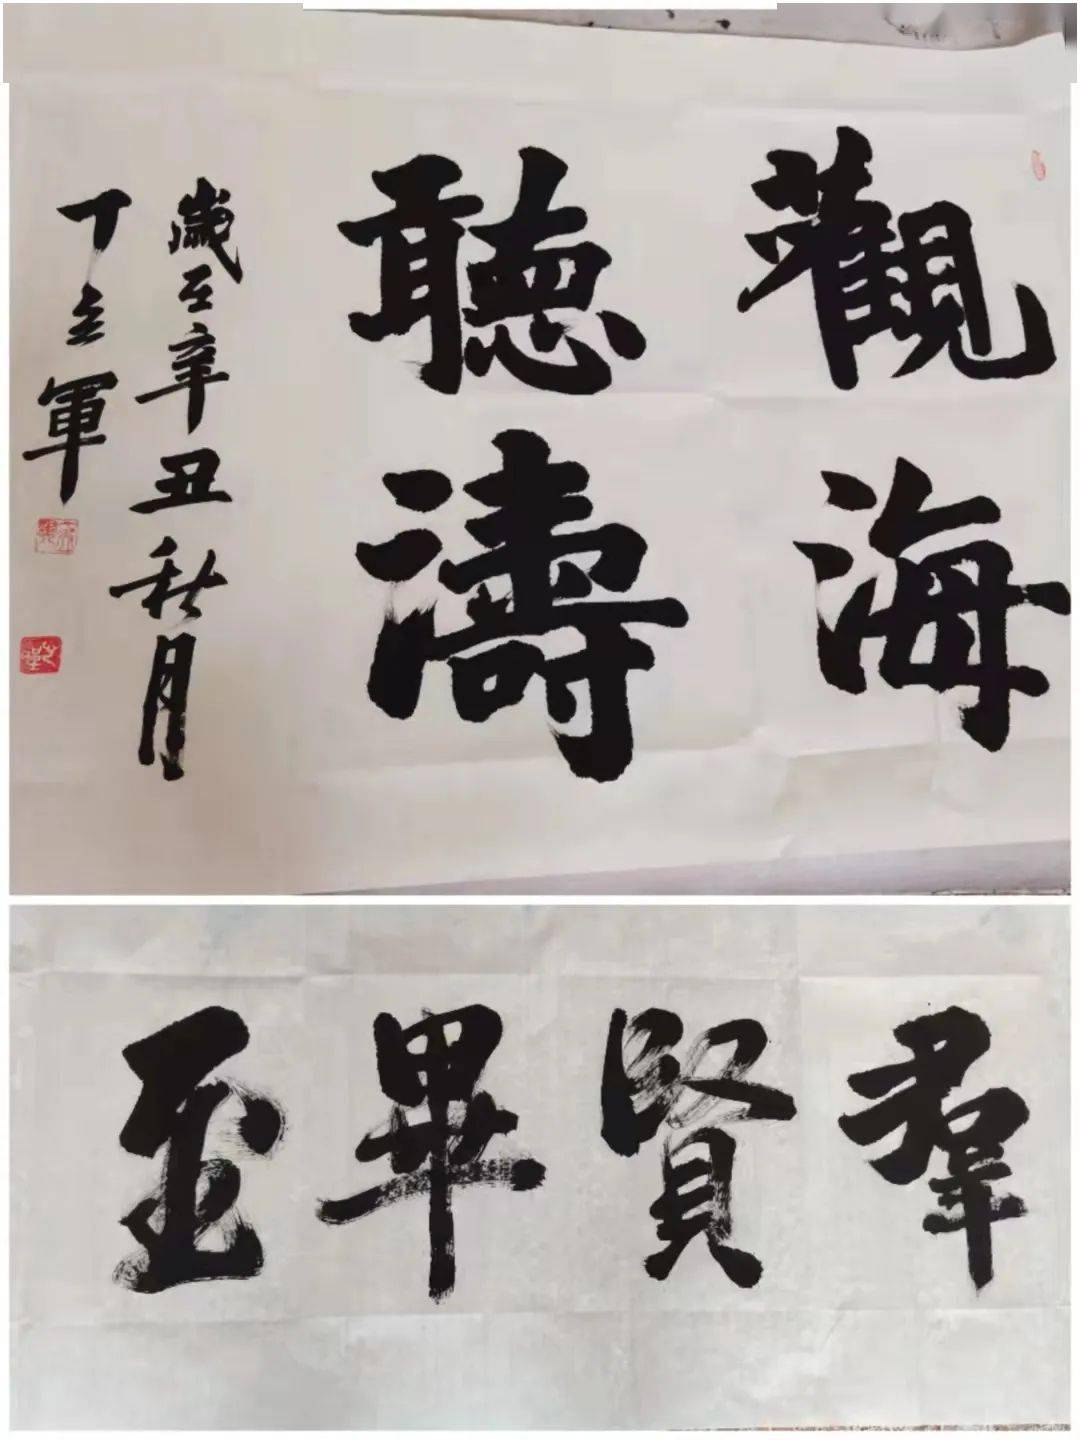 觀海
聽濤
歲在辛丑秋月
丁立軍
羣賢畢至